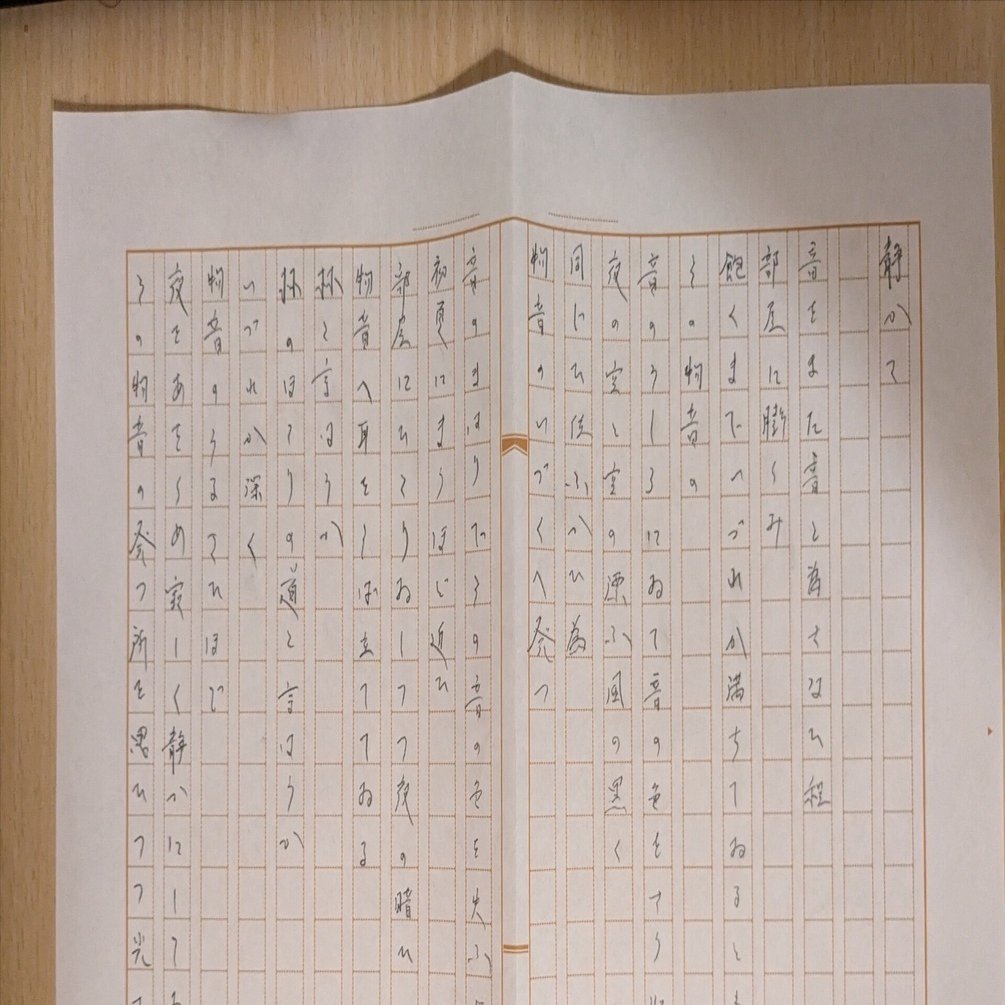 静かで
音をまた音と為さない程
部屋に膨らみ
飽くまでいづれか満ちてゐると
その物音の
音のうしろにゐて音の色をさう
夜の空と空の漂ふ風の黒く
同じひ使ふかひ為
物音のいづくへ発つ
音のまはりでその音の色を失ふ
初更にまうほど近い
部屋にひとりゐしつつ夜の暗い
物音へ耳をそば立ててゐる
秋と言はうか
秋のほとりの道と言はうか
いづれか深く
物音のうるさいほど
夜をあをざめ寂しく静かにして
その物音の発つ所を思ひつつ光